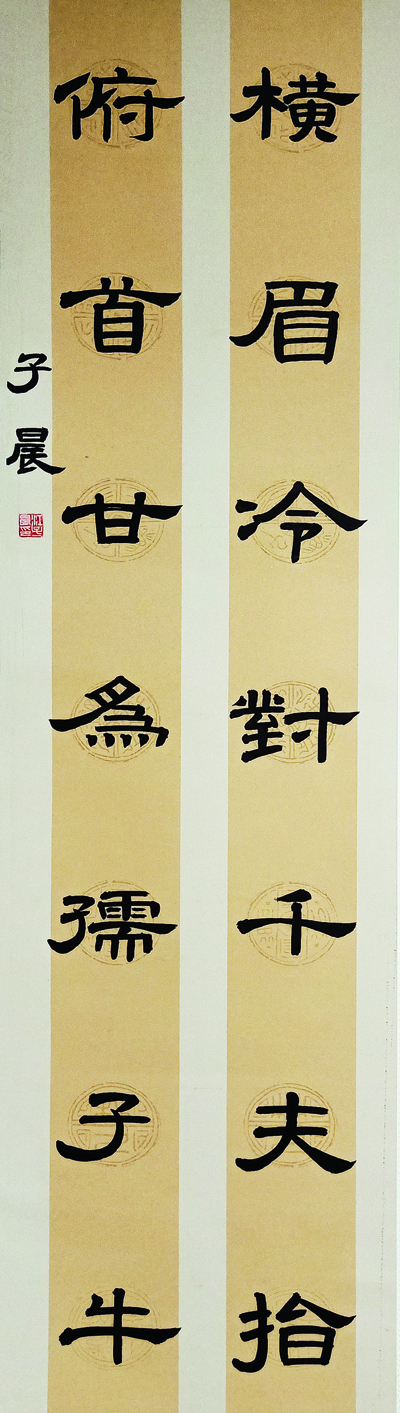 橫眉冷對千夫指
俯首甘為孺子牛
子晨